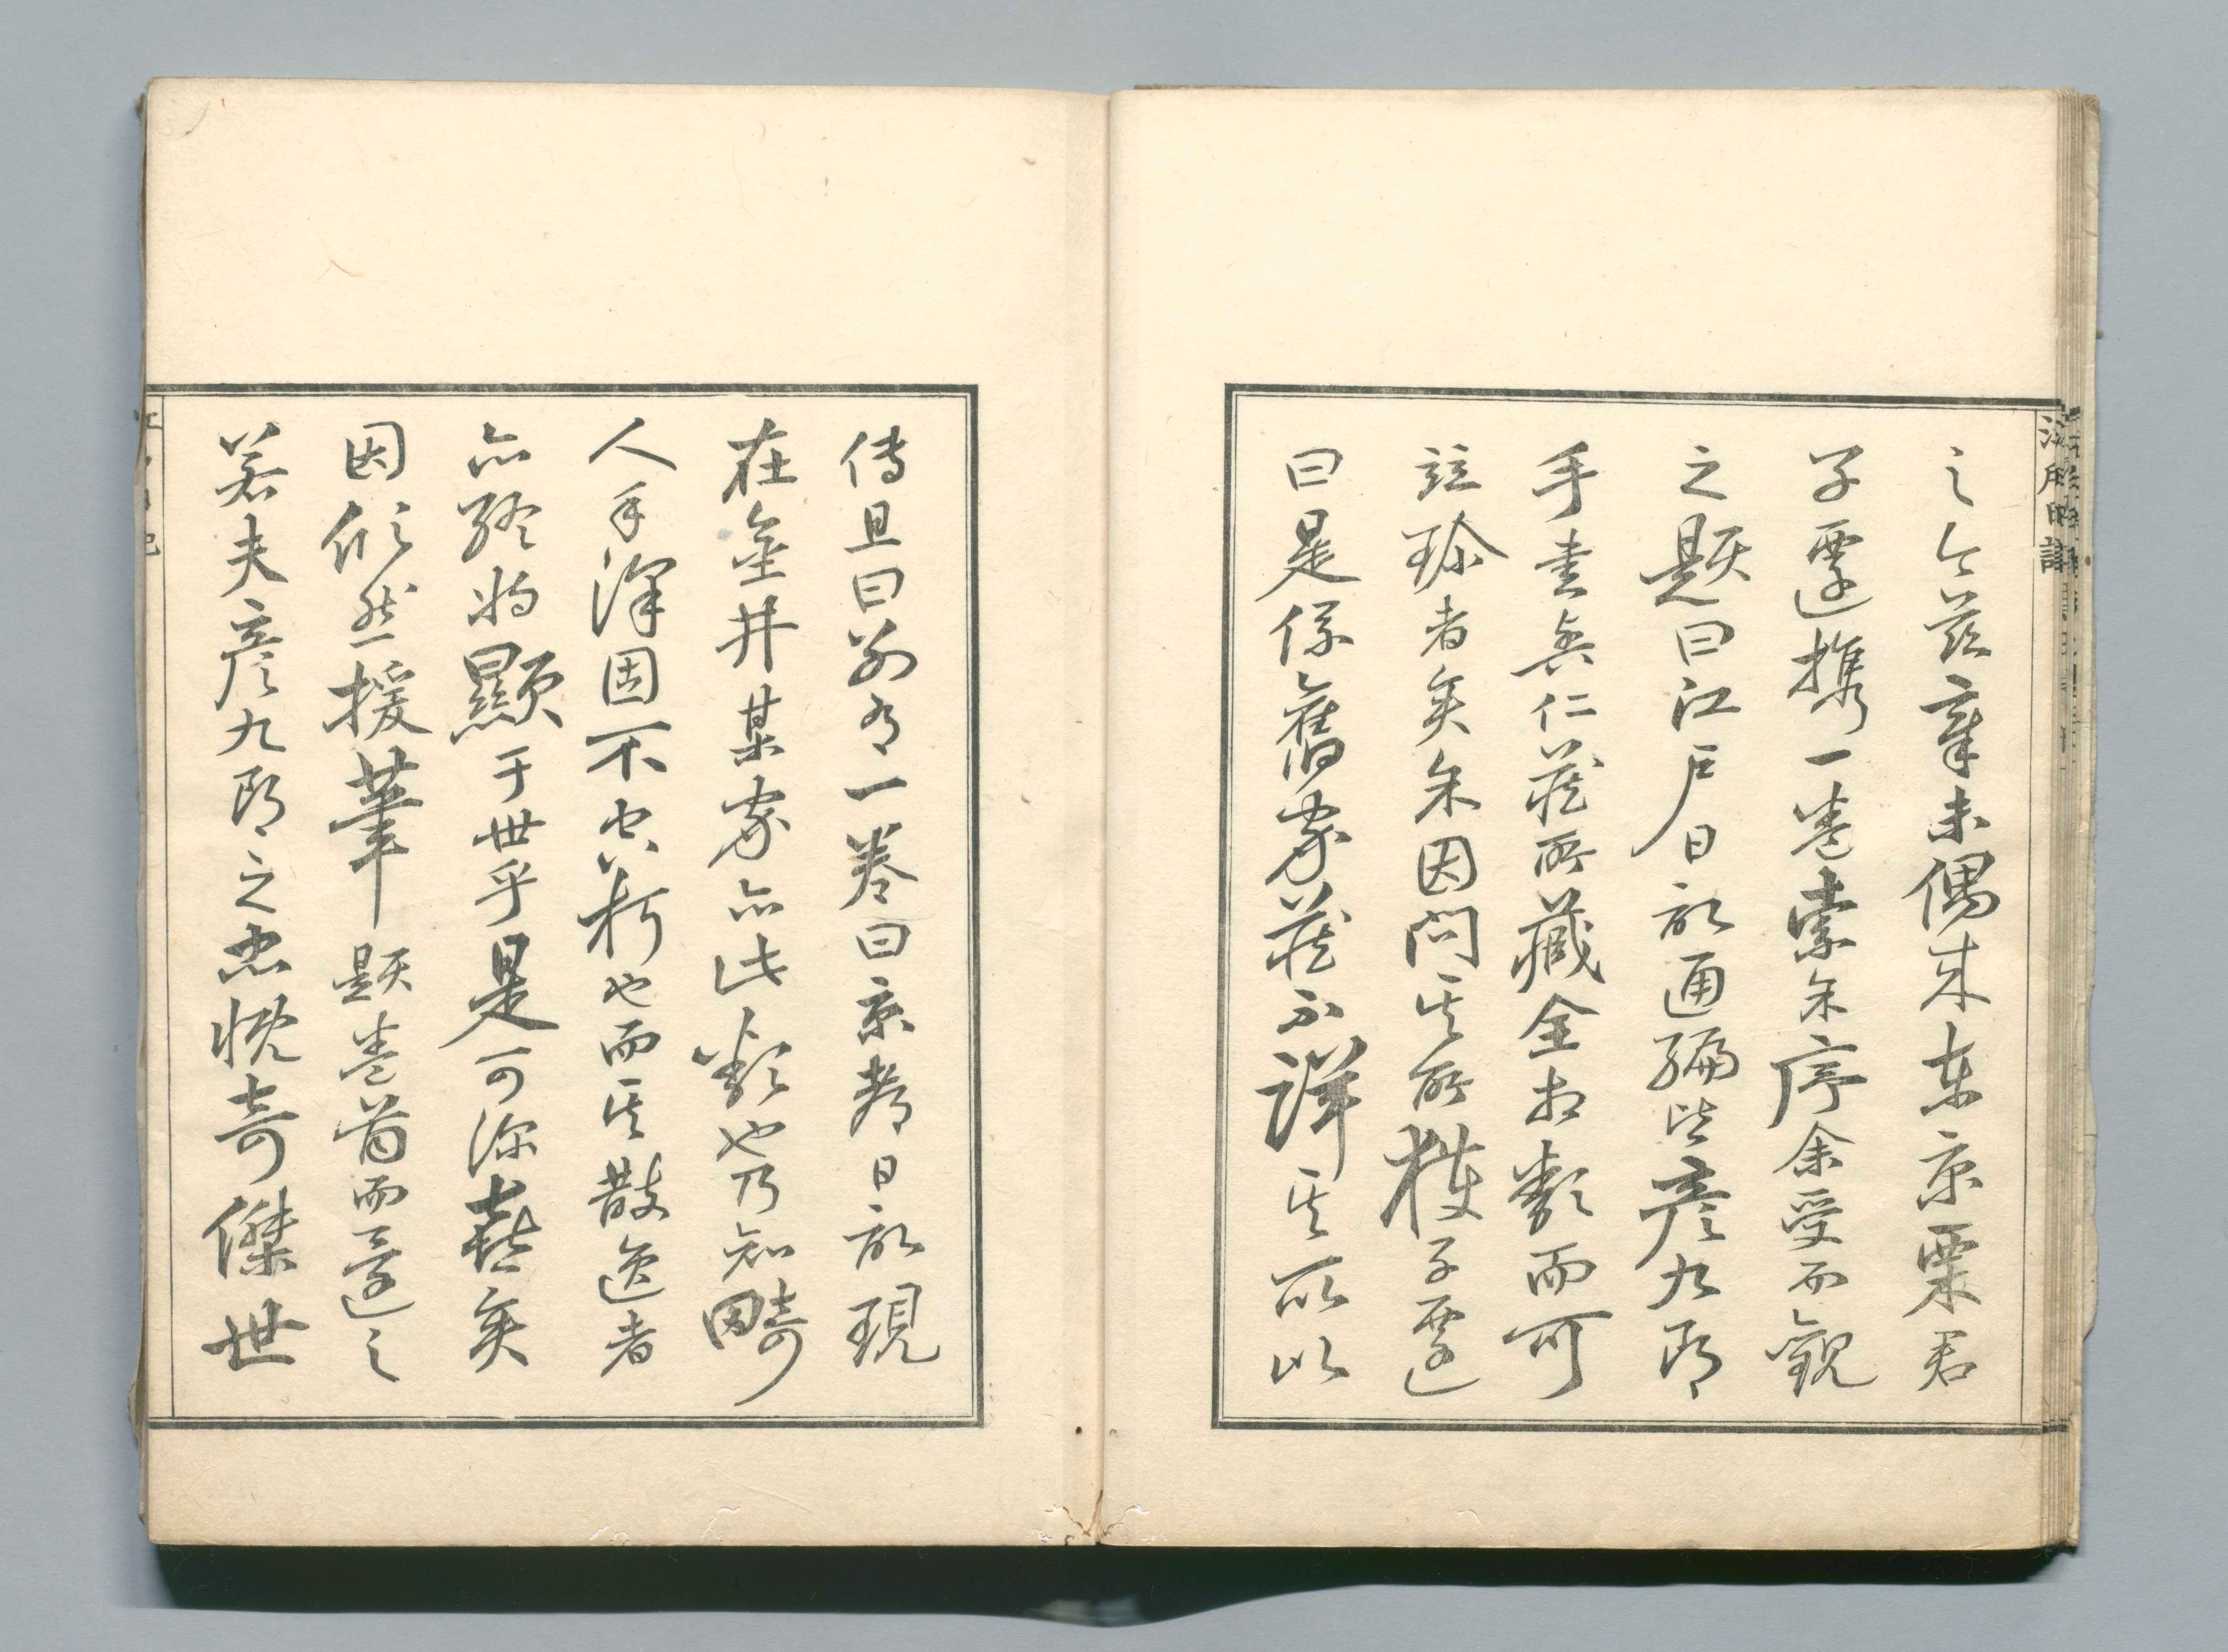 江戸日記
之今茲辛未偶来東京栗君
子遷携一巻索余序余受而觀
之題曰江戸日記通編皆彦九郎
手書與仁藏所藏全相類而可
珍者矣余因問其所獲子遷
曰是係舊家藏不詳其所以
傳且曰別有一巻曰京都日記現
在金井某家亦此類也乃知畸
人手澤固不容朽也而其散逸者
亦終將顯于世乎是可深喜矣
因欣然援筆題巻首而還之
若夫彦九郎之忠慨奇傑世